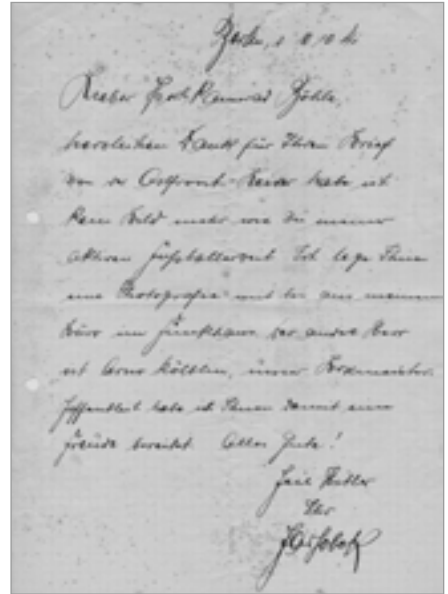 Berlin, 10.
Lieber Sportkamerad
herzlichen Dank für Ihren Brief
von der Ostfront. Leider habe ich
kein Bild mehr wie Sie meiner
aktiven Fussballerzeit. Ich lege Ihnen
eine Photografie mit bei aus meinem
Büro im Funkhaus, der andre Herr
ist Arno Kölblin, unser Boxmeister.
Hoffentlich habe ich Ihnen damit eine
Freude bereitet. Alles Gute!
Heil Hitler
Ihr